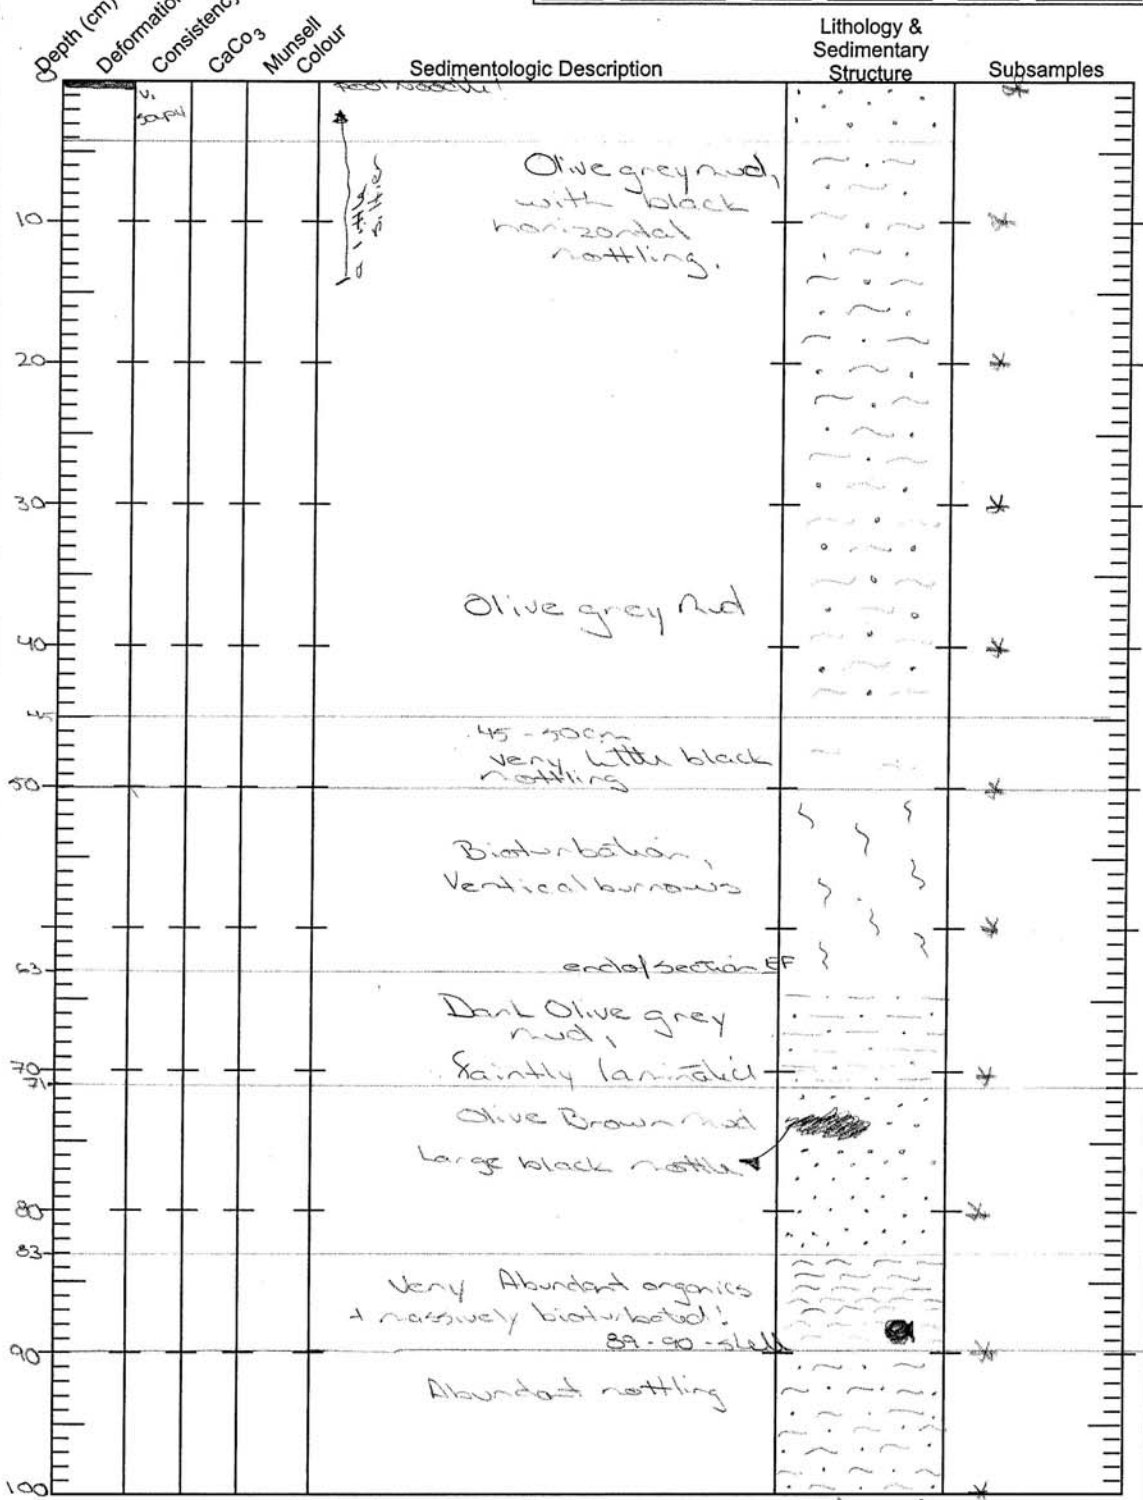 Depth (cm)
Deformation
Consistency
CaCo3
Munsell
Colour
Sedimentologic Description
Lithology &
Sedimentary
Structure
Subsamples
0
v.
soupy
a little
siltier
Olive grey mud,
with black
horizontal
mottling.
10
20
30
Olive grey mud
40
45
45-50cm
very little black
mottling
50
Bioturbation,
Vertical burrows
end of section EF
63
Dark Olive grey
mud,
faintly laminated
70
71
Olive Brown mud
Large black mottle
80
83
Very Abundant organics
+ massively bioturbated!
89-90-shell
90
Abundant mottling
100